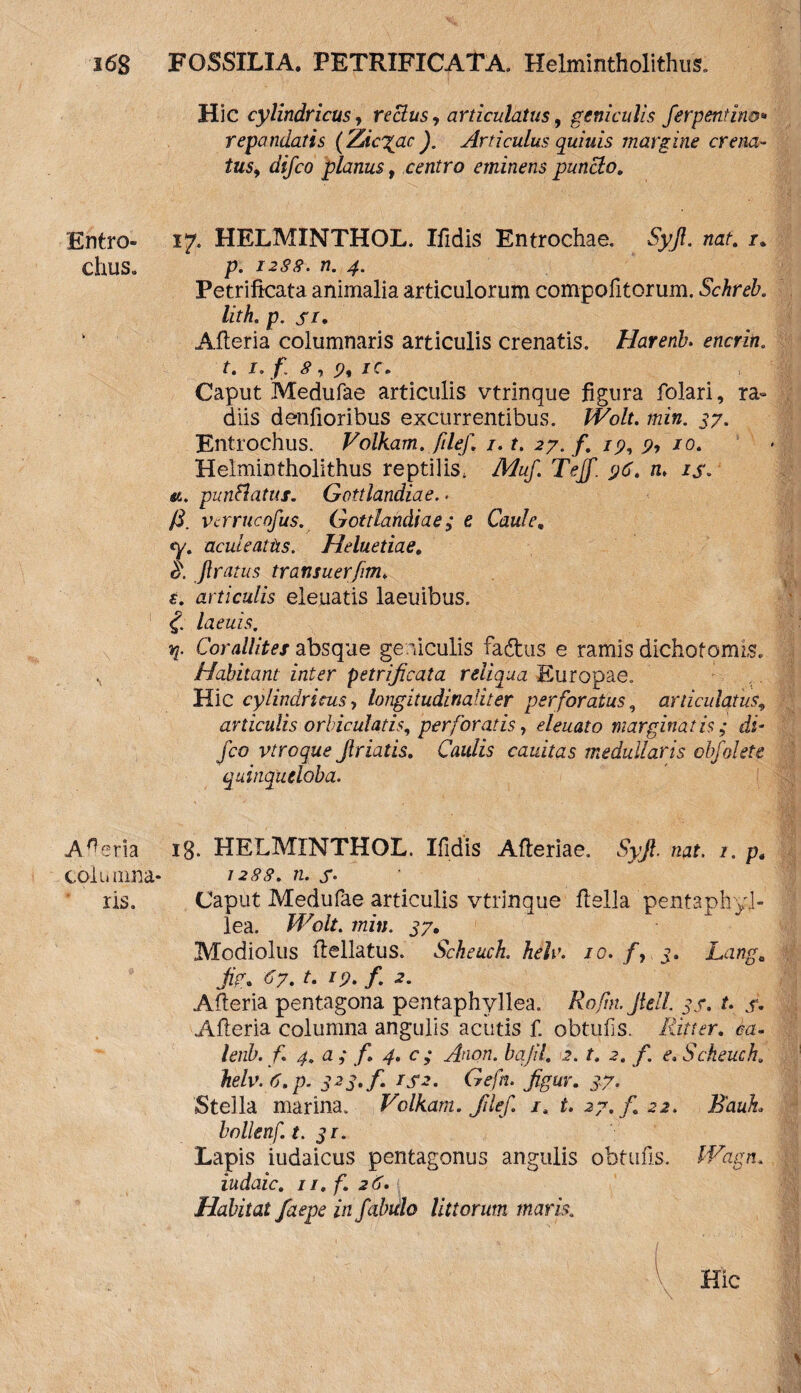 168 FOSSILIA. PETRIFICATA. Helmintholithus.
Hic cylindricus, rectus, articulatus, geniculis ſerpentino-
repandatis (Zicꝫac). Articulus quiuis margine crena-
tus, diſco planus, centro eminens puncto.
Entro-
chus.
17. HELMINTHOL. Iſidis Entrochae. Syſt. nat. 1.
p. 1288. n. 4.
Petrificata animalia articulorum compoſitorum. Schreb.
lith. p. 51.
Aſteria columnaris articulis crenatis. Harenb. encrin.
t. 1. f. 8, 9, 10.
Caput Meduſae articulis vtrinque figura ſolari, ra-
diis denſioribus excurrentibus. Wolt. min. 37.
Entrochus. Volkam. ſileſ. 1. t. 27. f. 19, 9, 10.
Helmintholithus reptilis. Muſ. Teſſ. 96. n. 15.
α. punctatus. Gottlandiae.
β. verrucoſus. Gottlandiae; e Caule.
γ. aculeatus. Heluetiae.
δ. ſtratus transuerſim.
ε. articulis eleuatis laeuibus.
ζ. laeuis.
η. Corallites absque geniculis factus e ramis dichotomis.
Habitant inter petrificata reliqua Europae.
Hic cylindricus, longitudinaliter perforatus, articulatus,
articulis orbiculatis, perforatis, eleuato marginatis; di-
ſco vtroque ſtriatis. Caulis cauitas medullaris obſolete
quinqueloba.
Aſteria
columna-
ris.
18. HELMINTHOL. Iſidis Aſteriae. Syſt. nat. 1. p.
1288. n. 5.
Caput Meduſae articulis vtrinque ſtella pentaphyl-
lea. Wolt. min. 37.
Modiolus ſtellatus. Scheuch. helv. 10. f, 3. Lang.
fig. 67. t. 19. f. 2.
Aſteria pentagona pentaphyllea. Roſin. ſtell. 35. t. 5.
Aſteria columna angulis acutis ſ. obtuſis. Ritter. ca-
lenb. f. 4. a; f. 4. c; Anon. baſil. 2. t. 2. f. e. Scheuch.
helv. 6. p. 323. f. 152. Geſn. figur. 37.
Stella marina. Volkam. ſileſ. 1. t. 27. f. 22. Bauh.
bollenſ. t. 31.
Lapis iudaicus pentagonus angulis obtuſis. Wagn.
iudaic. 11. f. 26.
Habitat ſaepe in ſabulo littorum maris.
Hic